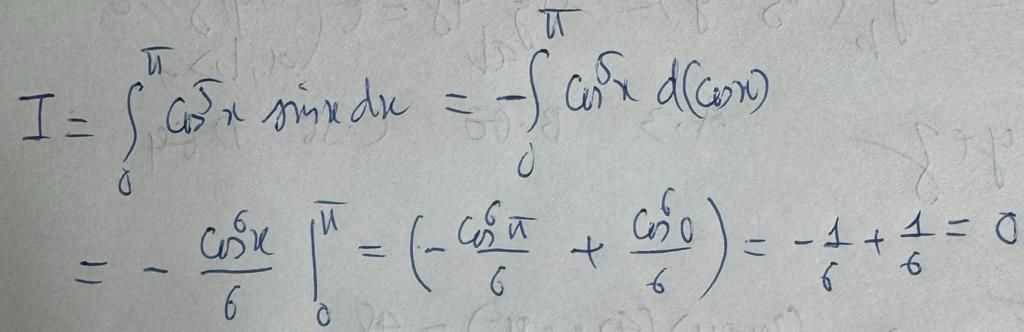 I = ∫₀^π cos⁵x sinx dx = -∫₀^π cos⁵x d(cosx)
= - cos⁶x/6 |₀^π = (- cos⁶π/6 + cos⁶0/6) = - 1/6 + 1/6 = 0